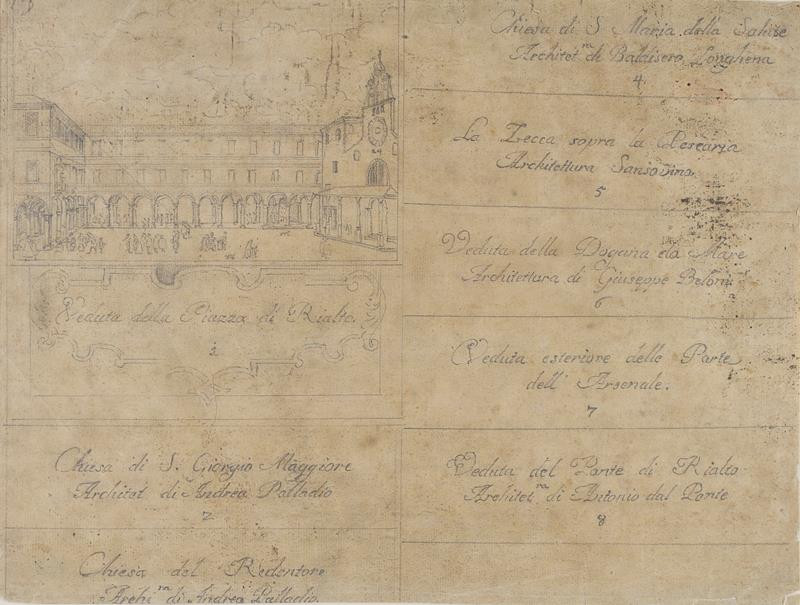 Veduta della Piazza di Rialto.
Chiesa di S. Giorgio Maggiore
Architet di Andrea Palladio
2
Chiesa del Redentore
Archi.ra di Andrea Palladio.
Chiesa di S Maria della Salute
Architet.ra di Baldisera Longhena
4
La Zecca sopra la Pescaria
Architettura Sansovino.
5
Veduta della Dogana da Mare
Architettura di Giuseppe Beloni
6
Veduta esteriore delle Parte
dell' Arsenale.
7
Veduta del Ponte di Rialto
Architet.ra di Antonio dal Ponte
8